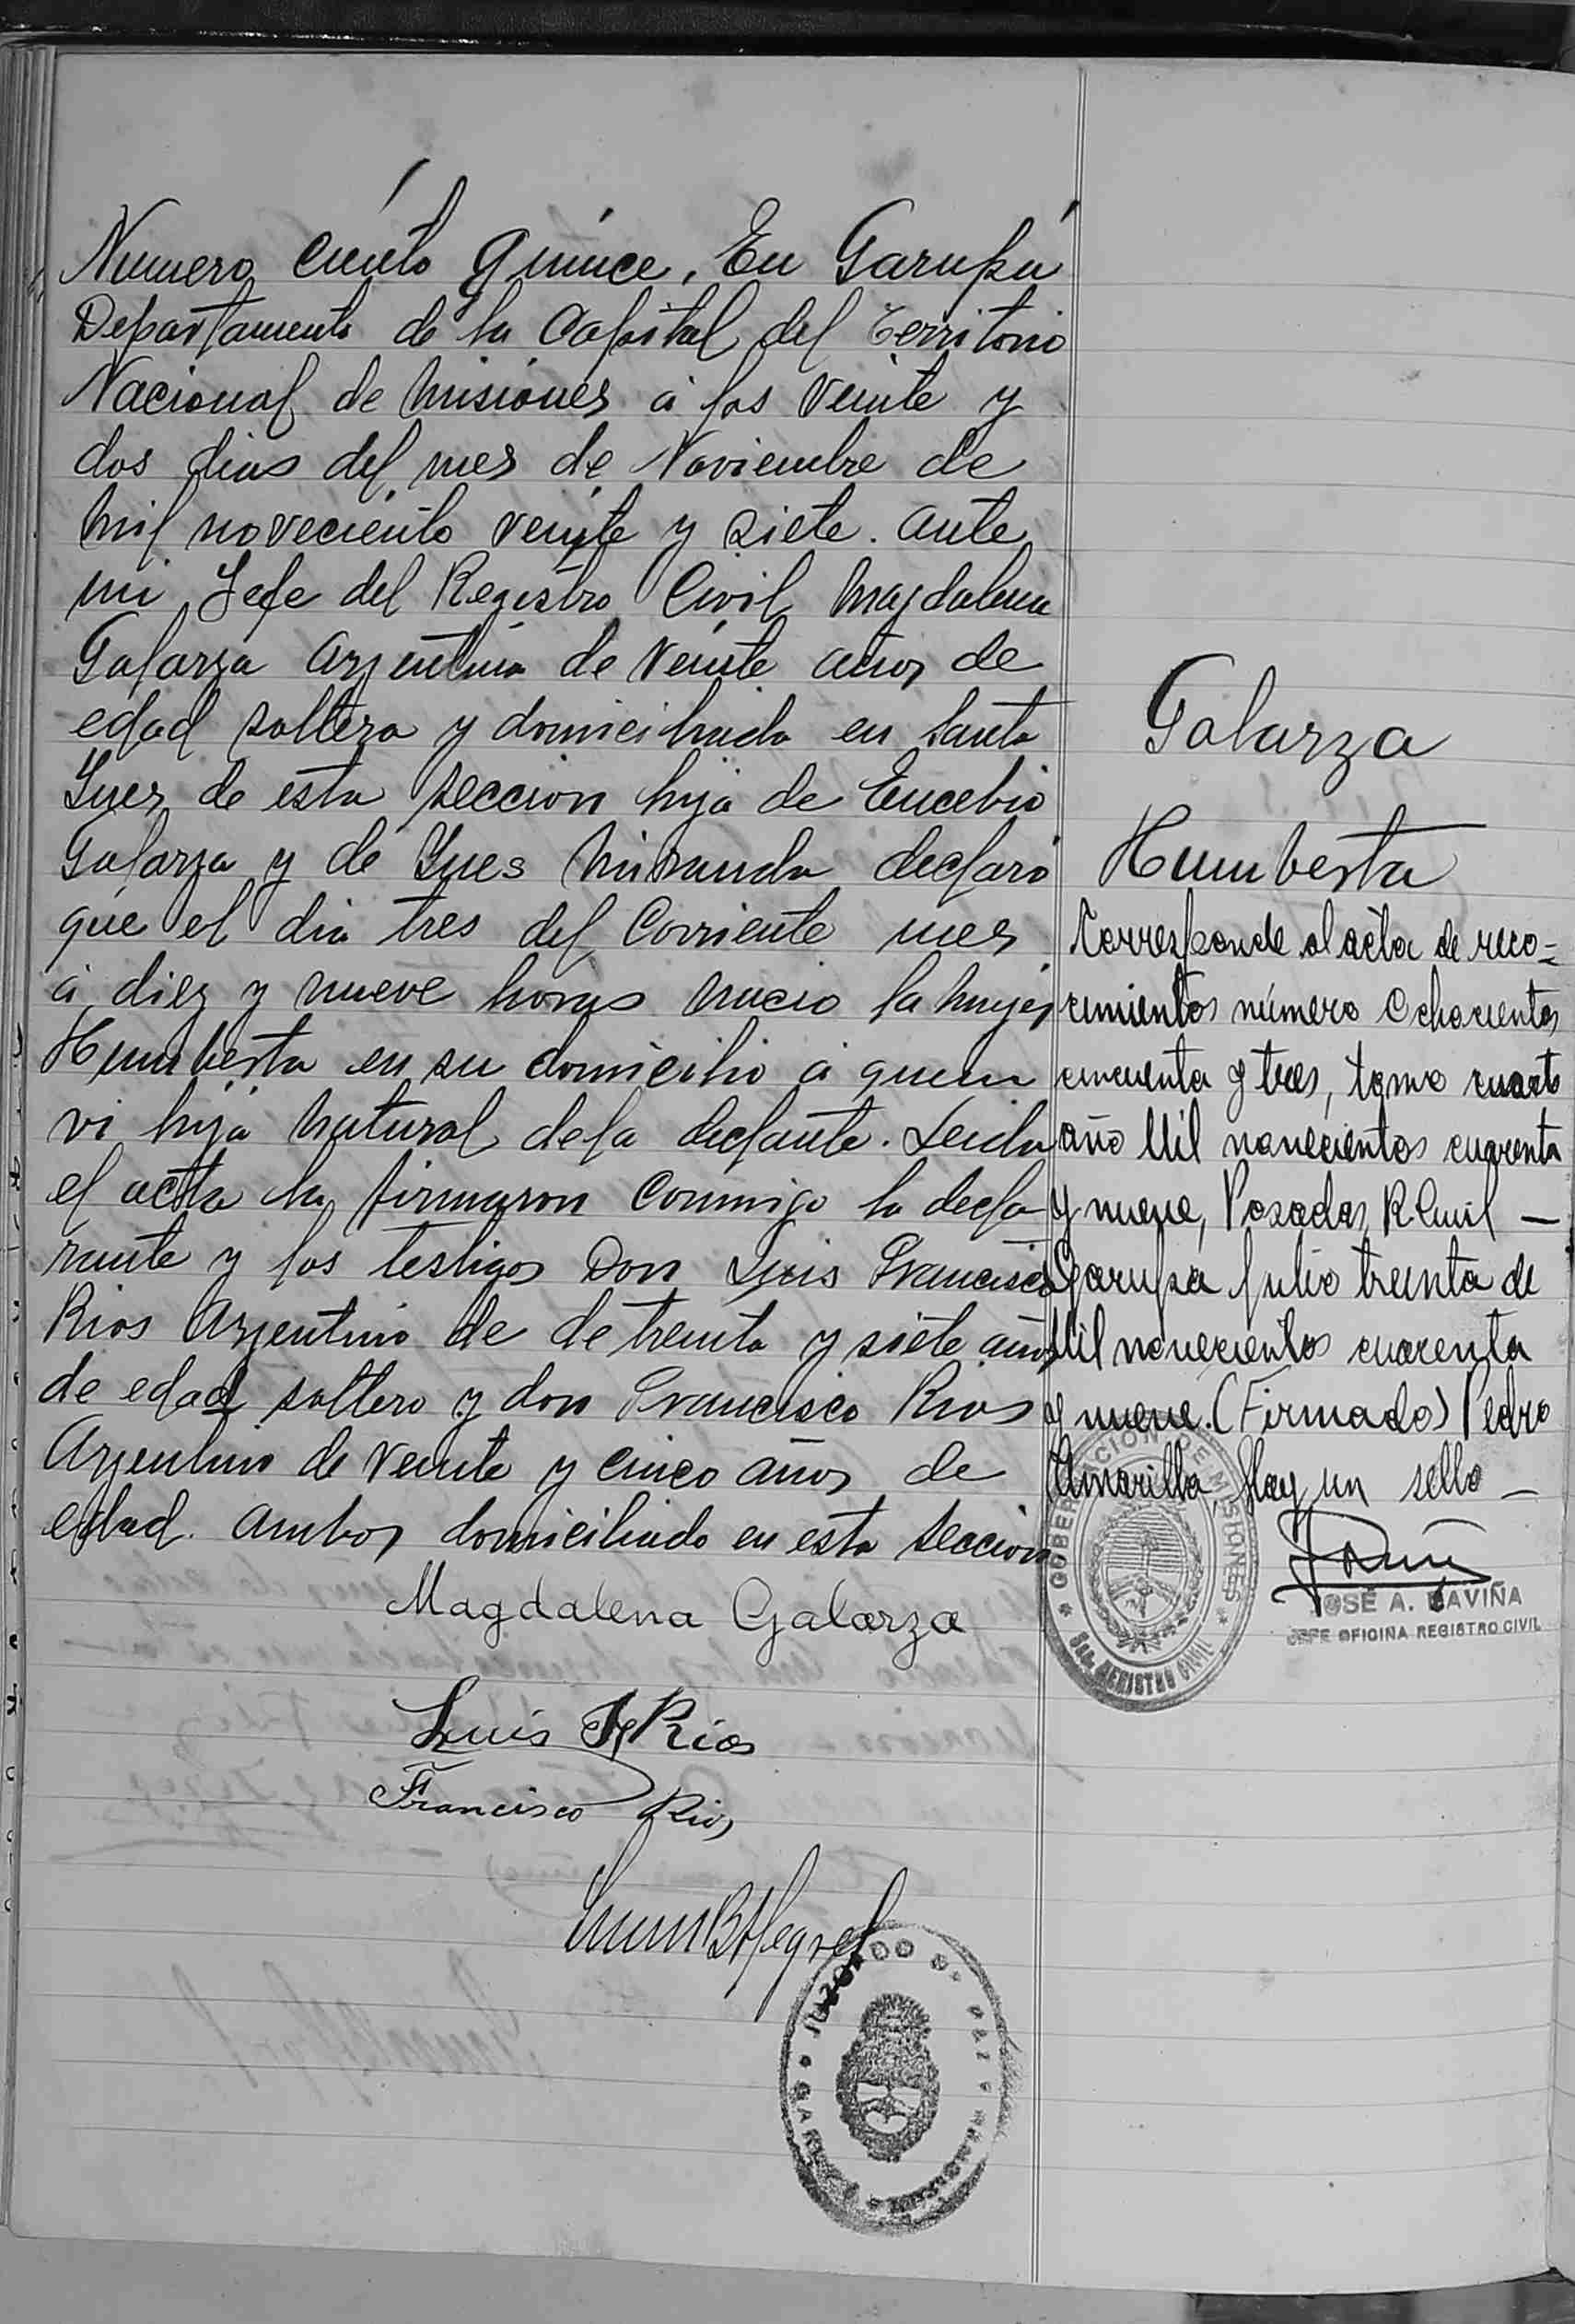 Numero ciento quince. En Garupá
Departamento de la Capital del Territorio
Nacional de Misiones á los veinte y
dos dias del mes de Noviembre de
mil noveciento veinte y siete. ante
mi Jefe del Registro Civil Magdalena
Galarza Argentina de veinte años de
edad soltera y domiciliada en Santa
Ines de esta seccion hija de Eucebio
Galarza y de Ynes Miranda declaró
que el dia tres del Corriente mes
á diez y nueve horas nacio la mujer
Humberta en su domicilio á quien
vi hija natural dela declante. Leida
el acta la firmaron conmigo la decla-
rante y los testigos Don Luis Francisco
Rios Argentino de de treinta y siete años
de edad soltero y don Francisco Rios
Argentino de veinte y cinco años de
edad. ambos domiciliado en esta seccion
Magdalena Galarza
Luis F Rios
Francisco Rios
JUZGADO DE PAZ
GARUPA
Galarza
Humberta
Corresponde al acta de reco=
cimientos número Ochocientos
cincuenta y tres, tomo cuarto
año Mil novecientos cuarenta
y nueve, Posadas, R. Civil —
Garupa Julio treinta de
Mil novecientos cuarenta
y nueve. (Firmado) Pedro
Amarilla Hay un sello —
GOBERNACION DE MISIONES
REGISTRO CIVIL
JOSÉ A. DAVIÑA
JEFE OFICINA REGISTRO CIVIL